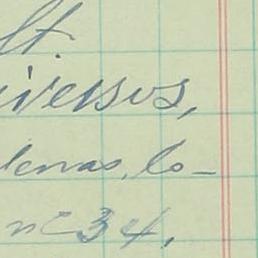 lt.
iversos,
lenas, lo-
nº 34.